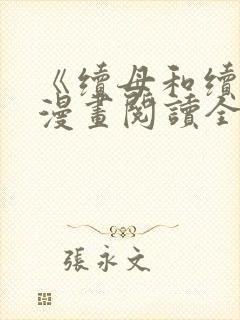 《續母和續
漫畫閱讀全
張永文